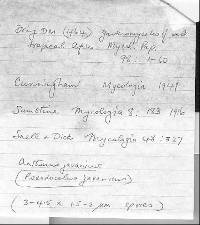 Dring DM (1964) Gasteromycetes of west
tropical Africa. Mycol. Pap.
98: 1-60
Cunningham Mycologia 1941
Sumstine Mycologia 8: 183 1916
Snell + Dick Mycologia 48: 327
javanicus
(Pseudocolus javanicus)
(3-4.5 x 1.5-2 μm spores)